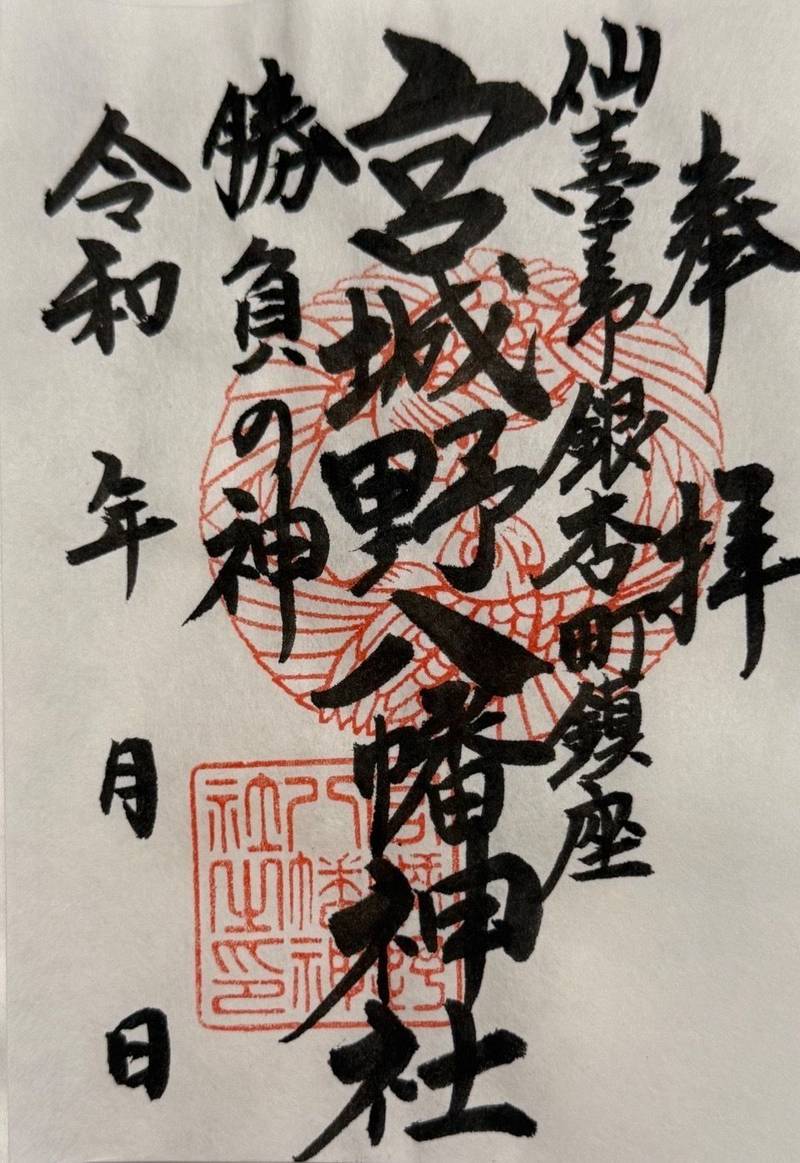 奉拝
仙臺市銀杏町鎮座
宮城野八幡神社
勝負の神
令和 年 月 日
宮城野
八幡神
社之印